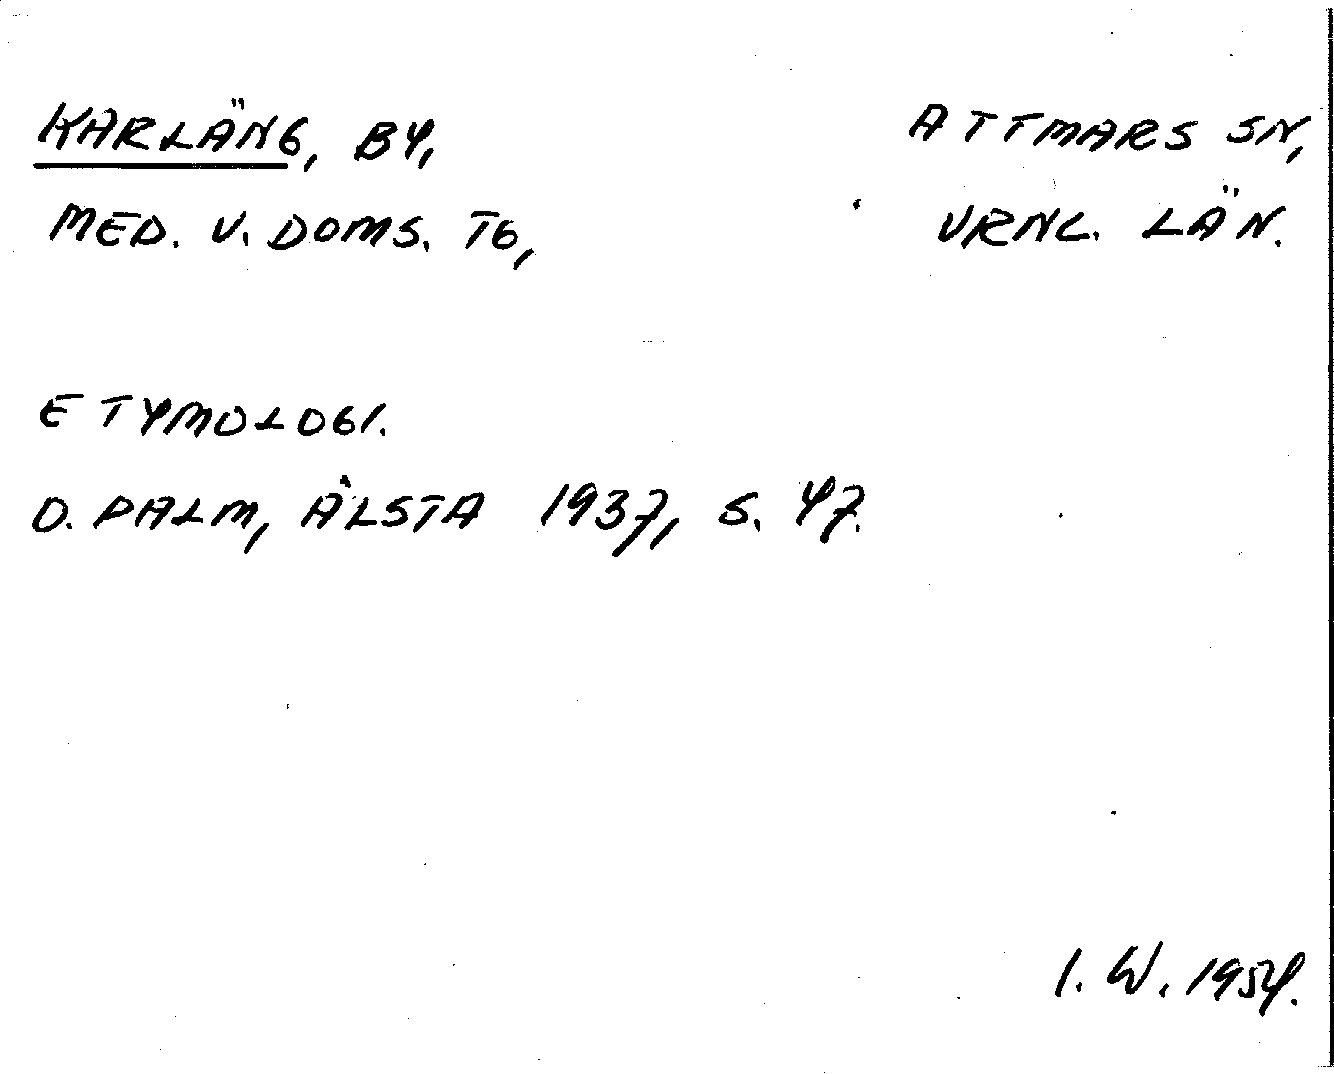 KARLÄNG, BY, ATTMARS SN,
MED. V. DOMS. TG, VRNL. LÄN.
ETYMOLOGI.
D. PALM, ÅLSTA 1937, S. 47.
I. W. 1954.